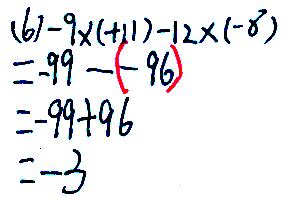 (6) -9×(+11)-12×(-8)
=-99-(-96)
=-99+96
=-3